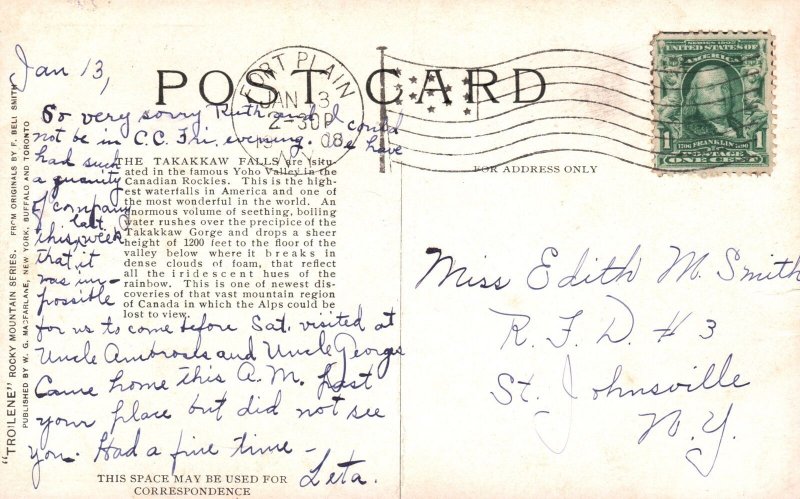 Jan 13,
POST CARD
FORT PLAIN
JAN 13
2-30P
08
N.Y.
SERIES 1902
UNITED STATES OF
AMERICA
1 1706 FRANKLIN 1790 1
ONE CENT
So very sorry Ruth and I could
not be in C.C. Fri. evening. We have
had such
a quanity
of company
last
this week
that it
was im-
possible
for us to come before Sat. visited at
Uncle Ambrose's and Uncle Georges
Came home this A.M. past
your place but did not see
you. Had a fine time -
Leta.
THE TAKAKKAW FALLS are situ-
ated in the famous Yoho Valley in the
Canadian Rockies. This is the high-
est waterfalls in America and one of
the most wonderful in the world. An
enormous volume of seething, boiling
water rushes over the precipice of the
Takakkaw Gorge and drops a sheer
height of 1200 feet to the floor of the
valley below where it breaks in
dense clouds of foam, that reflect
all the iridescent hues of the
rainbow. This is one of newest dis-
coveries of that vast mountain region
of Canada in which the Alps could be
lost to view.
THIS SPACE MAY BE USED FOR
CORRESPONDENCE
FOR ADDRESS ONLY
Miss Edith M. Smith
R. F. D. # 3
St. Johnsville
N.Y.
"TROILENE" ROCKY MOUNTAIN SERIES. FROM ORIGINALS BY F. BELL SMITH
PUBLISHED BY W. G. MACFARLANE, NEW YORK, BUFFALO AND TORONTO